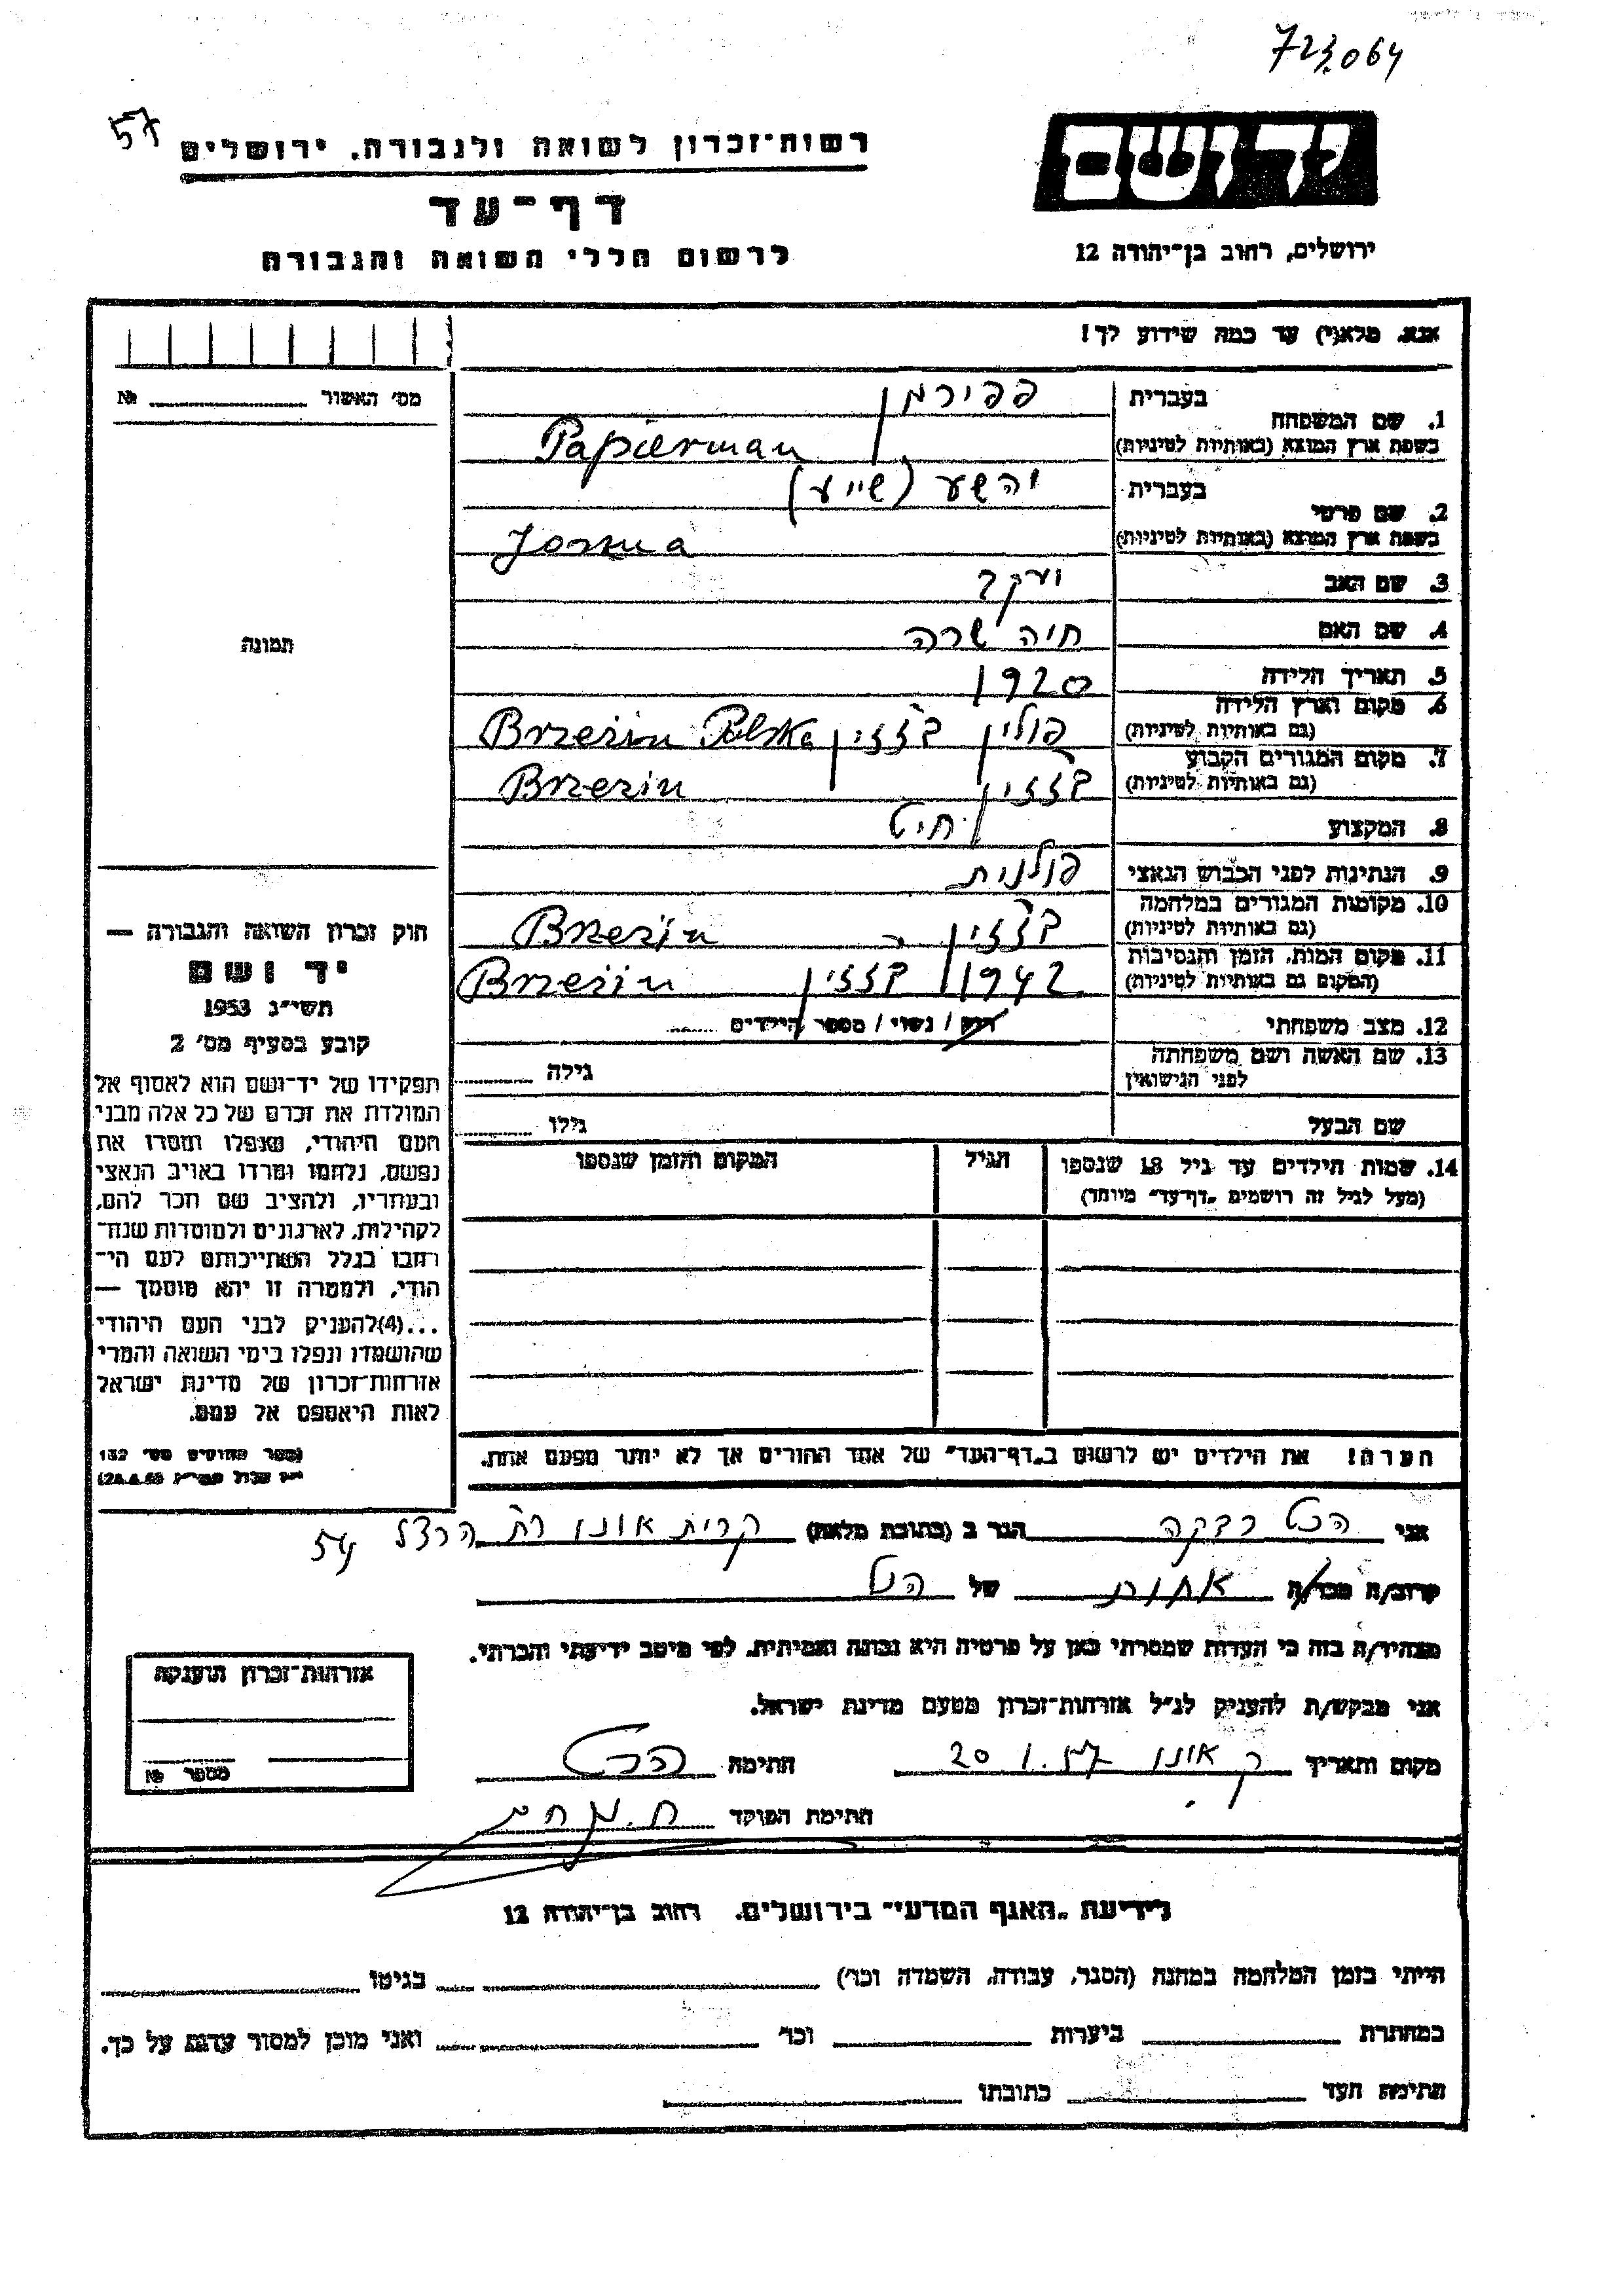 723064
57
רשות־זכרון לשואה ולגבורה, ירושלים
דף־עד
לרשום חללי השואה והגבורה
יד ושם
ירושלים, רחוב בן־יהודה 12
אנא, מלא(י) עד כמה שידוע לך!
מס' האשור № 
1. שם המשפחה בעברית פפירמן
בשפת ארץ המוצא (באותיות לטיניות) Papierman
2. שם פרטי בעברית יהשע (שייע)
בשפת ארץ המוצא (באותיות לטיניות) Josua
3. שם האב יעקב
4. שם האם חיה שרה
5. תאריך הלידה 1920
6. מקום וארץ הלידה (גם באותיות לטיניות) פולין בזזין Brzezin Polska
7. מקום המגורים הקבוע (גם באותיות לטיניות) בזזין Brzezin
8. המקצוע חיט
9. הנתינות לפני הכבוש הנאצי פולנית
10. מקומות המגורים במלחמה (גם באותיות לטיניות) בזזין Brzezin
11. מקום המות, הזמן והנסיבות (המקום גם באותיות לטיניות) 1942 בזזין Brzezin
12. מצב משפחתי רווק / נשוי / מספר הילדים
13. שם האשה ושם משפחתה לפני הנישואין גילה
שם הבעל גילו
14. שמות הילדים עד גיל 18 שנספו הגיל המקום והזמן שנספו
(מעל לגיל זה רושמים „דף־עד” מיוחד)
הערה! את הילדים יש לרשום ב„דף־העד” של אחד ההורים אך לא יותר מפעם אחת.
תמונה
חוק זכרון השואה והגבורה —
יד ושם
תשי"ג 1953
קובע בסעיף מס' 2
תפקידו של יד־ושם הוא לאסוף אל
המולדת את זכרם של כל אלה מבני
העם היהודי, שנפלו ומסרו את
נפשם, נלחמו ומרדו באויב הנאצי
ובעוזריו, ולהציב שם וזכר להם,
לקהילות, לארגונים ולמוסדות שנח־
רבו בגלל השתייכותם לעם הי־
הודי, ולמטרה זו יהא מוסמך —
...(4)להעניק לבני העם היהודי
שהושמדו ונפלו בימי השואה והמרי
אזרחות־זכרון של מדינת ישראל
לאות היאספם אל עמם.
(ספר החוקים מס' 132
אני הכט רבקה הגר ב (כתובת מלאה) קרית אונו רח הרצל 54
קרוב/ה מכר/ה אחות של הנ"ל
מצהיר/ה בזה כי העדות שמסרתי כאן על פרטיה היא נכונה ואמיתית, לפי מיטב ידיעתי והכרתי.
אני מבקש/ת להעניק לנ"ל אזרחות־זכרון מטעם מדינת ישראל.
מקום ותאריך ק אונו 20.1.57 חתימה הכט
חתימת הפוקד
אזרחות־זכרון הוענקה
מספר №
לידיעת „האגף המדעי” בירושלים, רחוב בן־יהודה 12
הייתי בזמן המלחמה במחנה (הסגר, עבודה, השמדה וכו') בגיטו
במחתרת ביערות וכו' ואני מוכן למסור עדות על כך.
חתימת העד כתובתו